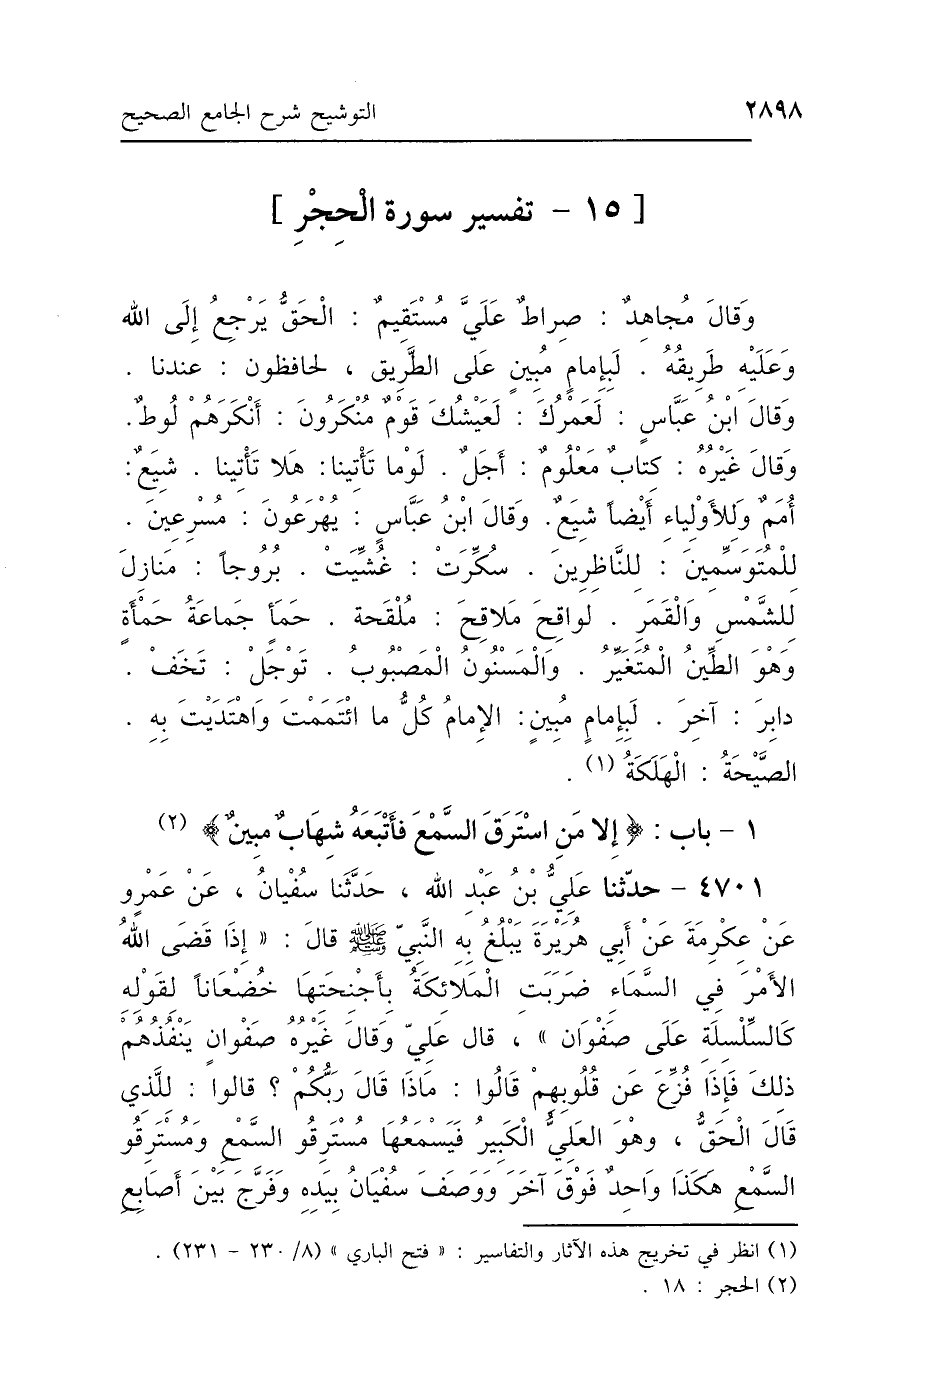 ٢٨٩٨ التوشيح شرح الجامع الصحيح
[ ١٥ - تفسير سورة الْحِجْرِ ]
وَقَالَ مُجاهِدٌ : صراطٌ عَلَيَّ مُسْتَقِيمٌ : الْحَقُّ يَرْجِعُ إِلَى الله
وَعَلَيْهِ طَرِيقُهُ . لَبِإِمامٍ مُبِينٍ عَلى الطَّرِيق ، لحافظون : عندنا .
وَقَالَ ابْنُ عَبَّاسٍ : لَعَمْرُكَ : لَعَيْشُكَ قَوْمٌ مُنْكَرُونَ : أَنْكَرَهُمْ لُوطٌ.
وَقَالَ غَيْرُهُ : كتابٌ مَعْلُومٌ : أَجَلٌ . لَوْما تَأْتِينا: هَلا تَأْتِينا . شِيَعٌ:
أُمَمٌ وَلِلأَوْلِياءِ أَيْضاً شيَعٌ. وَقَالَ ابْنُ عَبَّاسٍ : يُهْرَعُونَ : مُسْرِعِينَ .
لِلْمُتَوَسِّمِينَ : للنَّاظِرِينَ . سُكِّرَتْ : غُشِّيَتْ . بُرُوجاً : مَنَازِلَ
لِلشَّمْسِ وَالْقَمَرِ . لواقِحَ مَلَاقِحَ : مُلْقَحة . حَمَأ جَماعَةُ حَمْأَةٍ
وَهْوَ الطِّينُ الْمُتَغَيِّرُ . وَالْمَسْنُونُ الْمَصْبُوبُ . تَوْجَلْ : تَخَفْ .
دابِرَ : آخِرَ . لَبِإِمامٍ مُبِينٍ: الإِمامُ كُلُّ ما ائْتَمَمْتَ وَاهْتَدَيْتَ بِهِ .
الصَّيْحَةُ : الْهَلَكَةُ (١) .
١ - باب : ﴿ إلا مَن اسْتَرَقَ السَّمْعَ فَأَتْبَعَهُ شِهَابٌ مبِينٌ ﴾ (٢)
٤٧٠١ - حدّثنا عَلِيُّ بْنُ عَبْدِ الله ، حَدَّثَنا سُفْيانُ ، عَنْ عَمْرٍو
عَنْ عِكْرِمَةَ عَنْ أَبِي هُرَيْرَةَ يَبْلُغُ بِهِ النَّبِيّ ﷺ قالَ : « إِذَا قَضَى اللهُ
الأَمْرَ فِي السَّمَاءِ ضَرَبَتِ الْمَلائِكَةُ بِأَجْنِحَتِهَا خُضْعَاناً لِقَوْلِهِ
كَالسِّلْسِلَةِ عَلَى صَفْوَانٍ » ، قال عَلِيّ وَقَالَ غَيْرُهُ صَفْوانٍ يَنْفُذُهُمْ
ذلِكَ فَإِذَا فُزِّعَ عَن قُلُوبِهِمْ قَالُوا : مَاذَا قَالَ رَبُّكُمْ ؟ قالوا : للَّذِي
قَالَ الْحَقَّ ، وهْوَ العَلِيُّ الْكَبِيرُ فَيَسْمَعُهَا مُسْتَرِقُو السَّمْعِ وَمُسْتَرِقُو
السَّمْعِ هكَذَا وَاحِدٌ فَوْقَ آخَرَ وَوَصَفَ سُفْيَانُ بِيَدِهِ وَفَرَّجَ بَيْنَ أَصَابِعِ
(١) انظر في تخريج هذه الآثار والتفاسير : « فتح الباري » (٨/ ٢٣٠ - ٢٣١) .
(٢) الحجر : ١٨ .